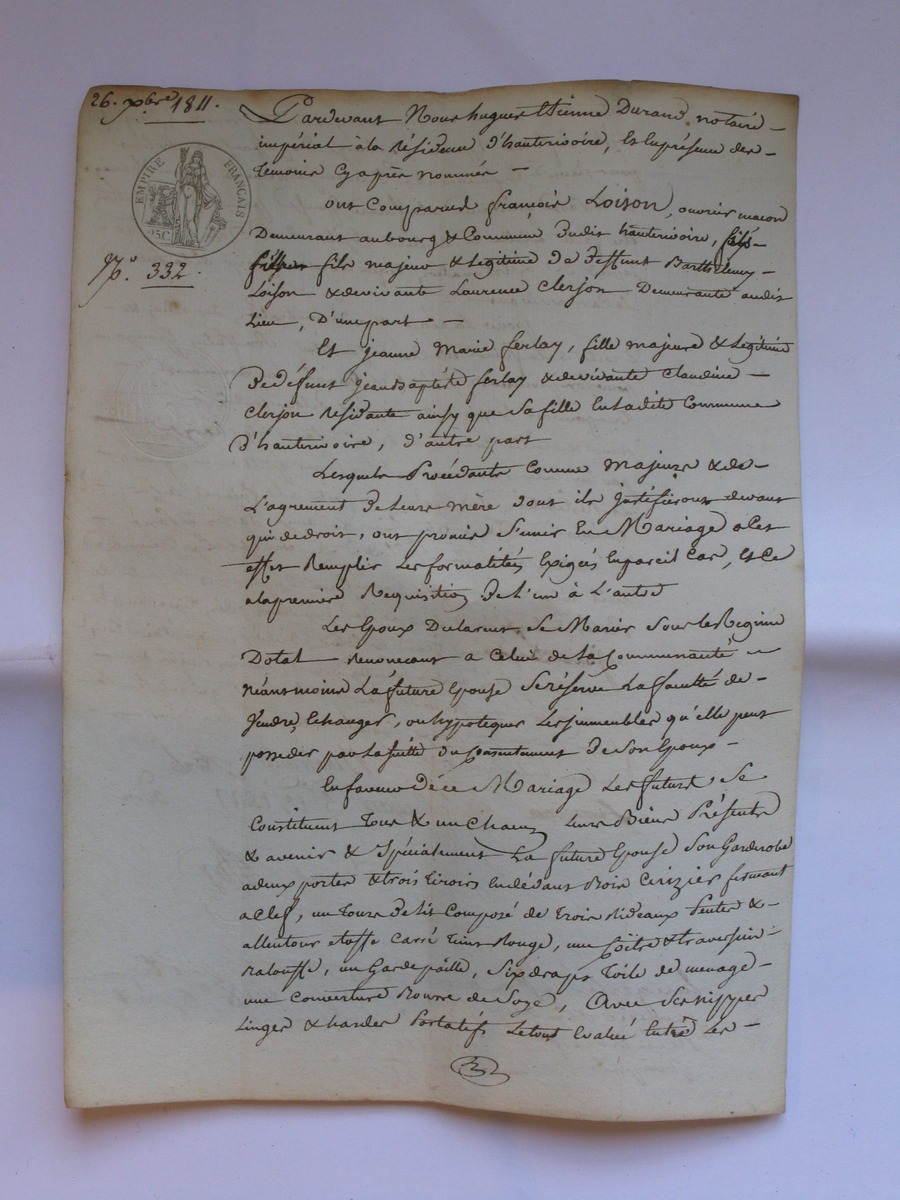 26. xbre 1811.
EMPIRE FRANÇAIS
25 C
No. 332.
Pardevant Nous hugues Etienne Durand notaire
impérial à la résidence d'hauterivoire, et en présence des
temoins cy après nommés
ont Comparus françois Loison, ouvrier macon
Demeurant au bourg & Commune dudit hauterivoire, fils
fils majeur & legitime de deffunt Barthelemy
Loison & de vivante Laurence Clerjon Demeurante audit
Lieu, D'une part
Et jeanne Marie ferlay, fille majeure & legitime
De défunt jean baptiste ferlay & de vivante Claudine
Clerjon residante ainsy que sa fille en ladite Commune
D'hauterivoire, d'autre part
Lesquels Procédants comme majeurs & de
L'agrement de leurs mère dont ils justifieront devant
qui de droit, ont promis s'unir en Mariage a cet
effet Remplir les formalités Exigées en pareil cas, et ce
a la premiere Requisition de l'un à L'autre
Les Epoux Declarent se Marier sous le Regime
Dotal renoncant a Celui de la Communauté
néantmoins La future Epouse se réserve la faculté de
Vendre, Echanger, ou hypotequer les immeubles qu'elle peut
posseder par la suitte du Consentement de son Epoux
En faveur de ce Mariage Les futurs se
Constituent Tous & un Chacun leurs Biens Présents
& avenir & Spécialement La future Epouse Son Garderobe
a deux portes & trois tiroirs en dévant Bois Cerizier fermant
a Clef, un Tour de lit Composé de Trois Rideaux Pentes &
allentour etoffe Carré Teint Rouge, une Coëtre & traversin
ralouffe, un Gardepaille, Six draps Toile de menage
une Couverture Bourre de Soye, Avec ses nippes
Linges & hardes Portatifs Le tout Evalué Entre les